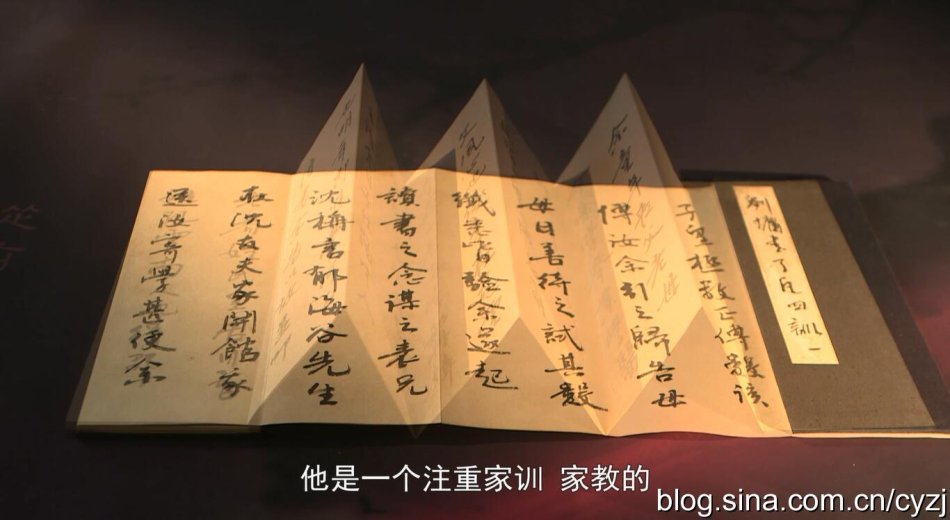 劉墉書了凡四訓一
子皇極數正傳數該
傳汝余引之歸告母
母曰善待之試其數
纖悉皆驗余遂起
讀書之念謀之表兄
沈稱言郁海谷先生
在沈友夫家開館我
送汝寄學甚便余
他是一个注重家训 家教的
blog.sina.com.cn/cyzj